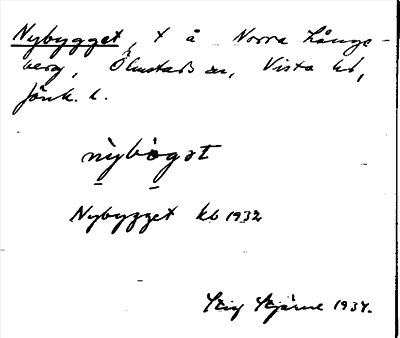 Nybygget, t å Norra Långs-
berg, Ölmstads sn, Vista hd,
Jönk. l.
nỳbògət
Nybygget kb 1932
Stig Stjärne 1934.